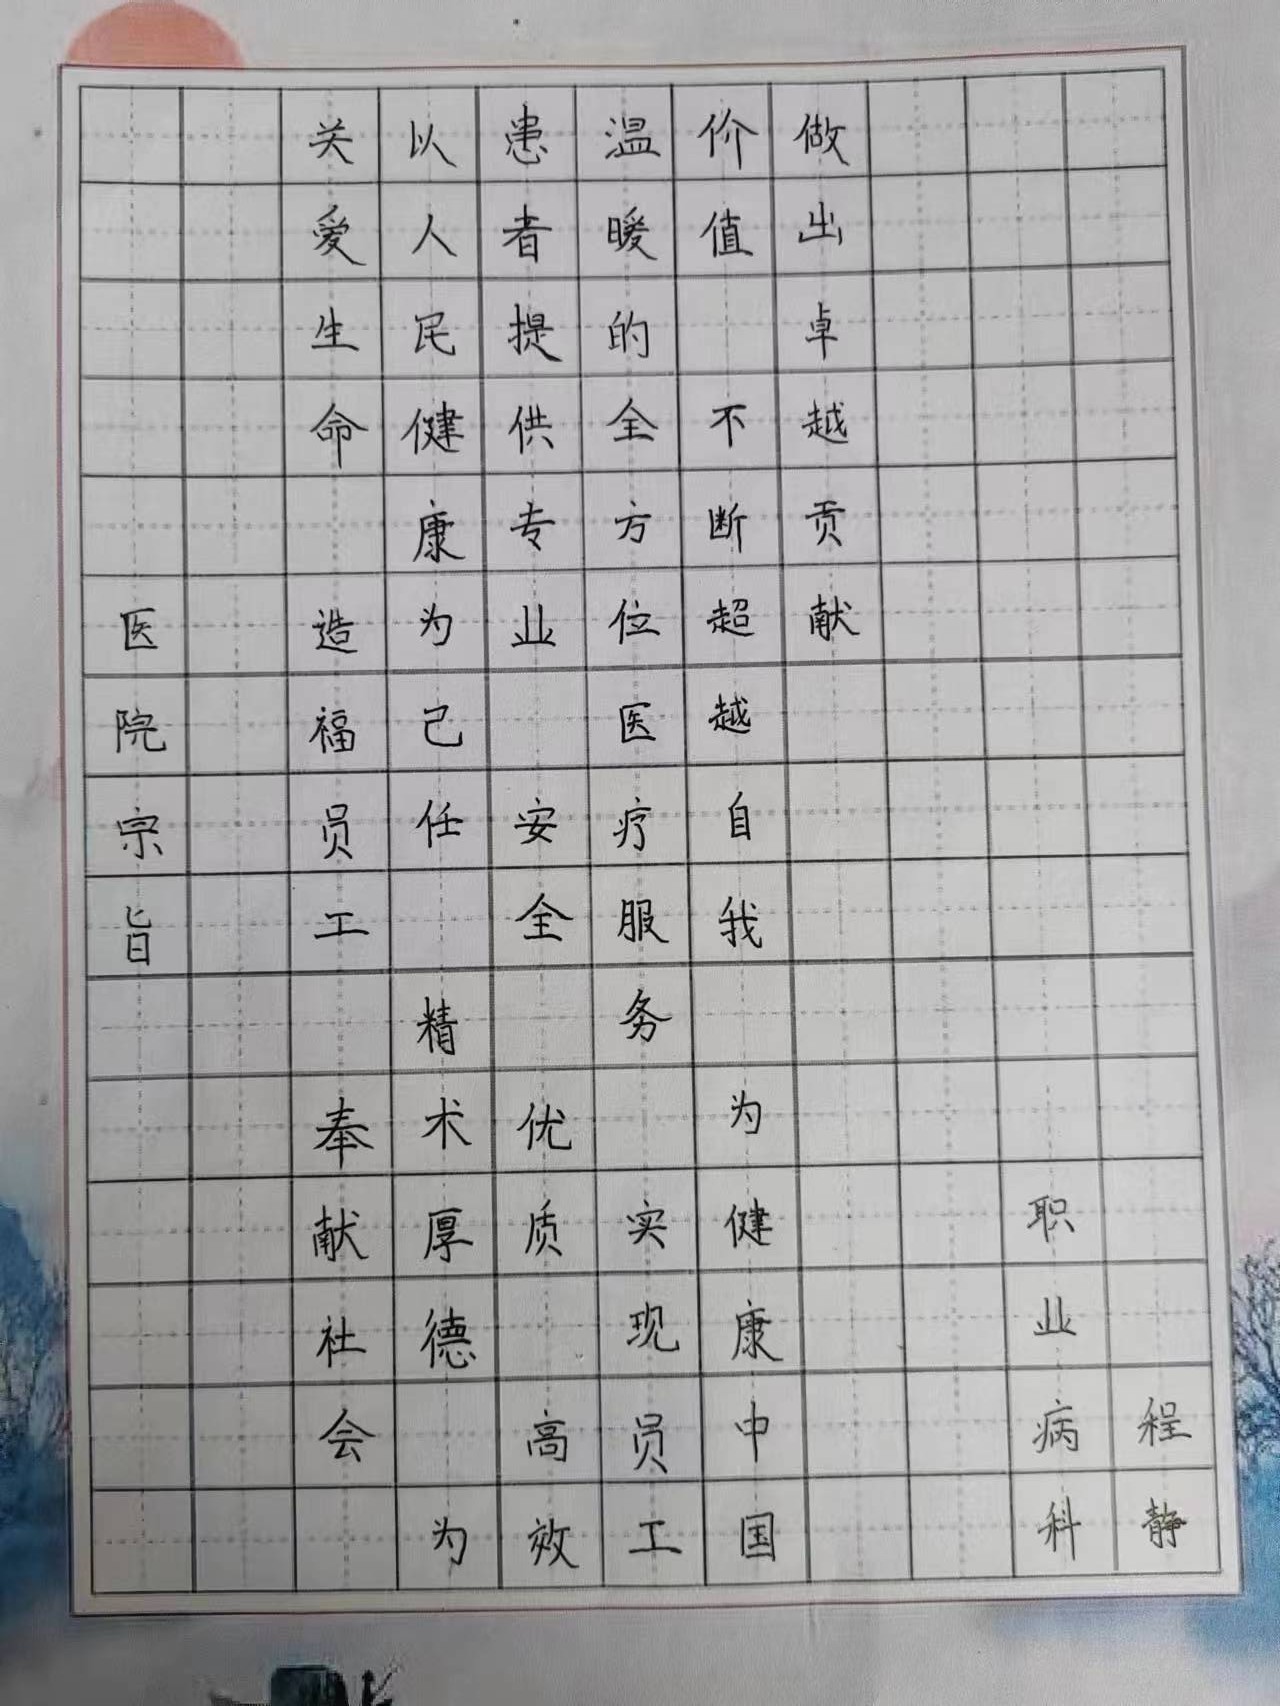 医院宗旨
关爱生命 造福员工 奉献社会
以人民健康为己任 精术厚德 为
患者提供专业 安全 优质 高效
温暖的全方位医疗服务 实现员工
价值 不断超越自我 为健康中国
做出卓越贡献
职业病科
程静